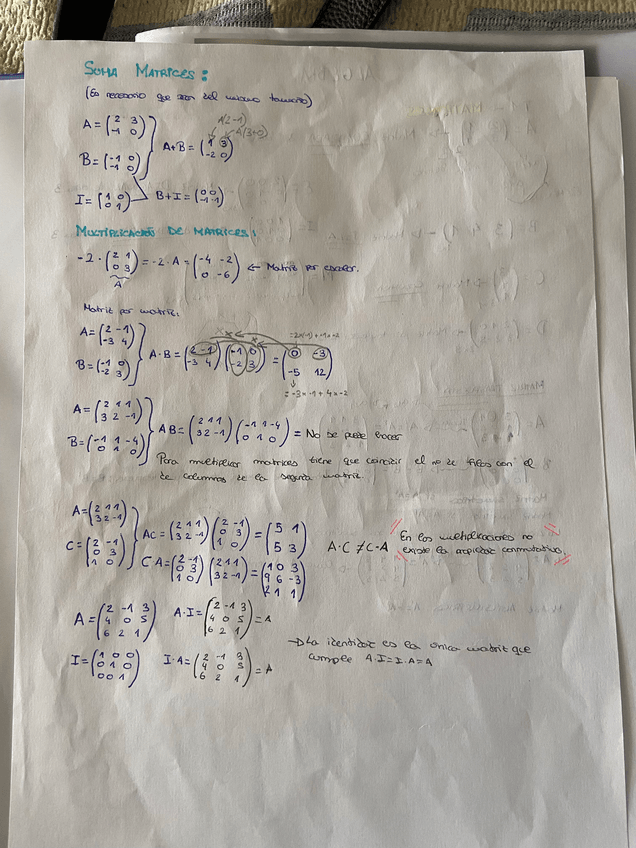 SUMA MATRICES:
(Es necesario que sean del mismo tamaño)
A = (2 3 / -1 0)
B = (-1 0 / -1 0)
A+B = (1 3 / -2 0)
I = (1 0 / 0 1)
B+I = (0 0 / -1 -1)
MULTIPLICACIÓN DE MATRICES:
-2 · (2 1 / 0 3) = -2 · A = (-4 -2 / 0 -6) ← Matriz por escalar.
A
Matriz por matriz:
A = (2 -1 / -3 4)
B = (-1 0 / -2 3)
A·B = (2 -1 / -3 4) (-1 0 / -2 3) = (0 -3 / -5 12)
= -3 x -1 + 4 x -2
A = (2 1 1 / 3 2 -1)
B = (-1 1 -4 / 0 1 0)
AB = (2 1 1 / 3 2 -1) (-1 1 -4 / 0 1 0) = No se puede hacer
Para multiplicar matrices tiene que coincidir el nº de filas con el
de columnas de la segunda matriz.
A = (2 1 1 / 3 2 -1)
C = (2 -1 / 0 3 / 1 0)
AC = (2 1 1 / 3 2 -1) (2 -1 / 0 3 / 1 0) = (5 1 / 5 3)
CA = (2 -1 / 0 3 / 1 0) (2 1 1 / 3 2 -1) = (1 0 3 / 9 6 -3 / 2 1 1)
A·C ≠ C·A
En las multiplicaciones no
existe la propiedad conmutativa.
A = (2 -1 3 / 4 0 5 / 6 2 1)
A·I = (2 -1 3 / 4 0 5 / 6 2 1) = A
I = (1 0 0 / 0 1 0 / 0 0 1)
I·A = (2 -1 3 / 4 0 5 / 6 2 1) = A
→ La identidad es la única matriz que
cumple A·I = I·A = A